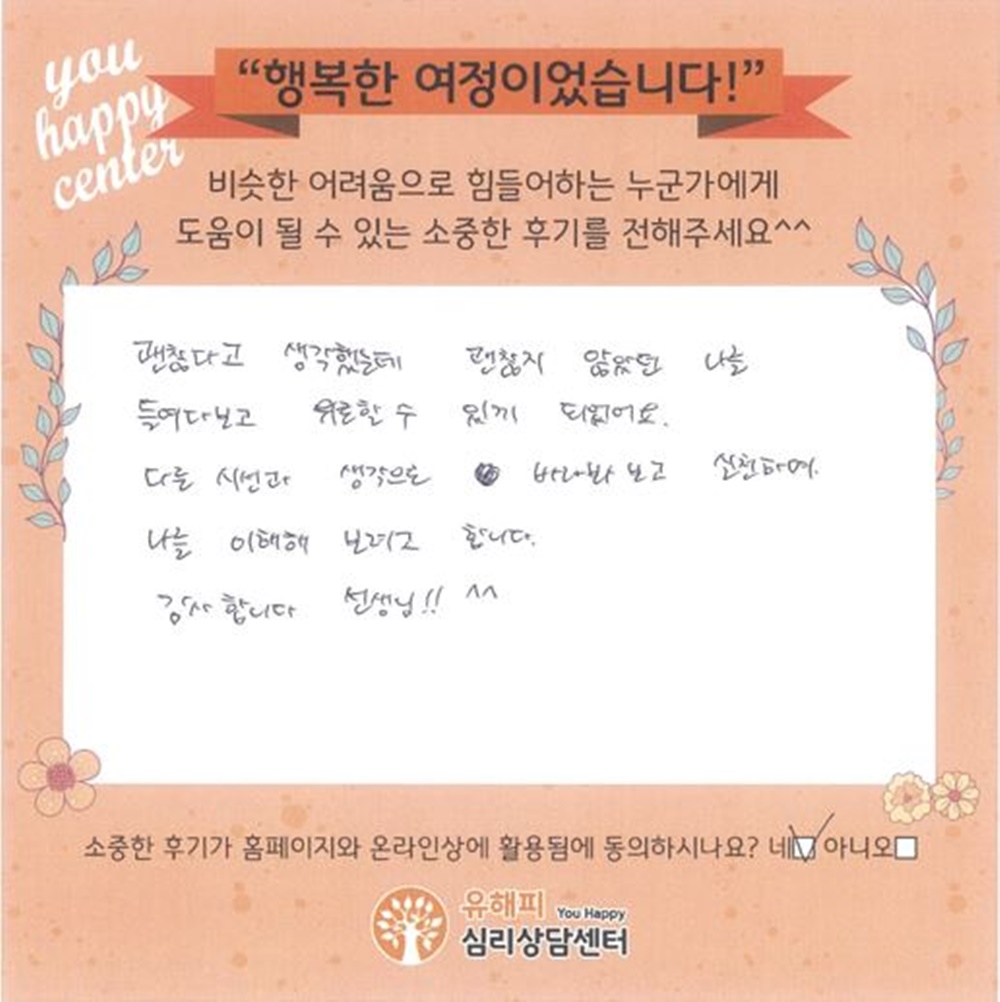 you
happy
center
“행복한 여정이었습니다!”
비슷한 어려움으로 힘들어하는 누군가에게
도움이 될 수 있는 소중한 후기를 전해주세요^^
괜찮다고 생각했는데 괜찮지 않았던 나를
들여다보고 위로할 수 있게 되었어요.
다른 시선과 생각으로 바라봐 보고 실천하며.
나를 이해해 보려고 합니다.
감사합니다 선생님!! ^^
소중한 후기가 홈페이지와 온라인상에 활용됨에 동의하시나요? 네 아니오
유해피 You Happy
심리상담센터